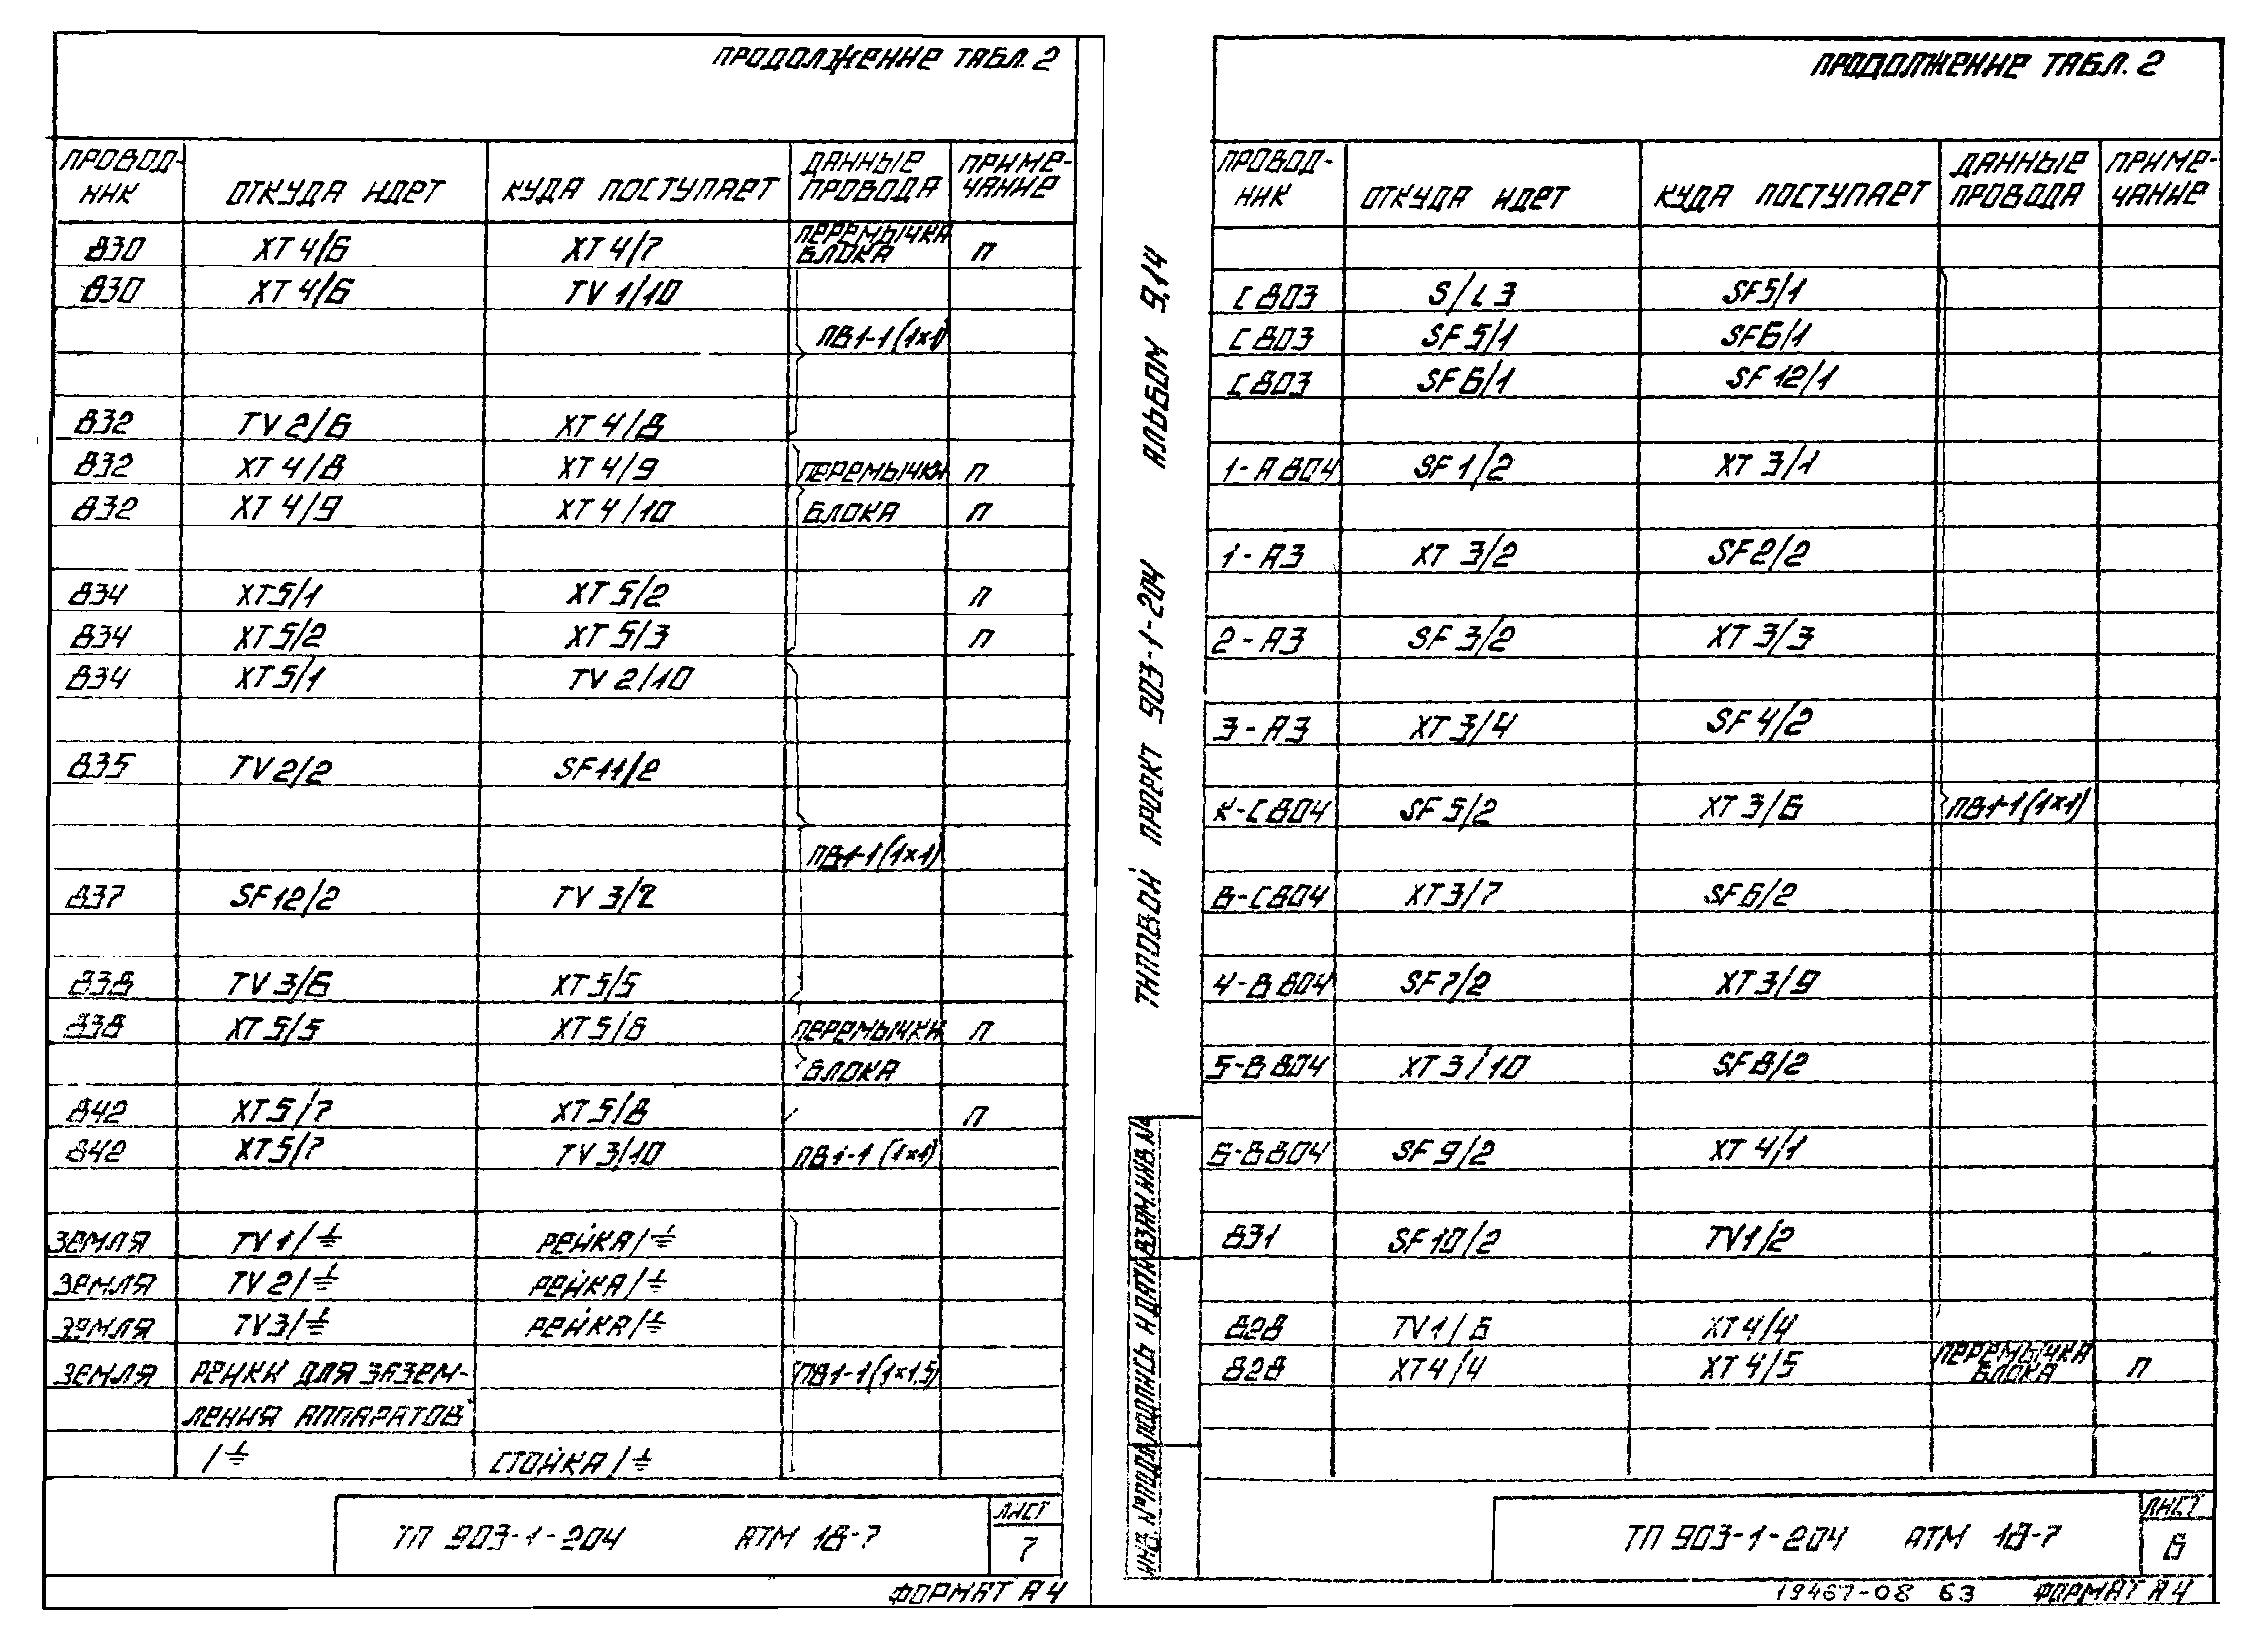 ПРОДОЛЖЕНИЕ ТАБЛ. 2
ПРОВОД-НИК ОТКУДА ИДЕТ КУДА ПОСТУПАЕТ ДАННЫЕ ПРОВОДА ПРИМЕ-ЧАНИЕ
830 XT 4/6 XT 4/7 ПЕРЕМЫЧКА БЛОКА П
830 XT 4/6 TV 1/10
ПВ1-1 (1×1)
832 TV 2/6 XT 4/8
832 XT 4/8 XT 4/9 ПЕРЕМЫЧКИ П
832 XT 4/9 XT 4/10 БЛОКА П
834 XT5/1 XT 5/2 П
834 XT 5/2 XT 5/3 П
834 XT 5/1 TV 2/10
835 TV 2/2 SF11/2
ПВ1-1 (1×1)
837 SF12/2 TV 3/2
838 TV 3/6 XT 5/5
838 XT 5/5 XT 5/6 ПЕРЕМЫЧКИ П
БЛОКА
842 XT 5/7 XT 5/8 П
842 XT 5/7 TV 3/10 ПВ1-1 (1×1)
ЗЕМЛЯ TV 1/⏚ РЕЙКА/⏚
ЗЕМЛЯ TV 2/⏚ РЕЙКА/⏚
ЗЕМЛЯ TV3/⏚ РЕЙКА/⏚
ЗЕМЛЯ РЕЙКИ ДЛЯ ЗАЗЕМ- ПВ1-1(1×1,5)
ЛЕНИЯ АППАРАТОВ
/⏚ СТОЙКА/⏚
ТП 903-1-204 АТМ 18-7 ЛИСТ
7
ФОРМАТ А4
АЛЬБОМ 9.14
ТИПОВОЙ ПРОЕКТ 903-1-204
ИНВ. № ПОДЛ. ПОДПИСЬ И ДАТА ВЗАМ. ИНВ. №
ПРОДОЛЖЕНИЕ ТАБЛ. 2
ПРОВОД-НИК ОТКУДА ИДЕТ КУДА ПОСТУПАЕТ ДАННЫЕ ПРОВОДА ПРИМЕ-ЧАНИЕ
С 803 S/L3 SF5/1
С 803 SF 5/1 SF6/1
С 803 SF 6/1 SF 12/1
1-А 804 SF 1/2 XT 3/1
1-А3 XT 3/2 SF2/2
2-А3 SF 3/2 XT 3/3
3-А3 XT 3/4 SF 4/2
К-С804 SF 5/2 XT 3/6 ПВ1-1 (1×1)
В-С804 XT 3/7 SF6/2
4-В 804 SF7/2 XT 3/9
5-В 804 XT 3/10 SF8/2
6-В804 SF 9/2 XT 4/1
831 SF 10/2 TV1/2
828 TV 1/6 XT 4/4
828 XT4/4 XT 4/5 ПЕРЕМЫЧКА БЛОКА П
ТП 903-1-204 АТМ 18-7 ЛИСТ
8
19467-08 63 ФОРМАТ А4